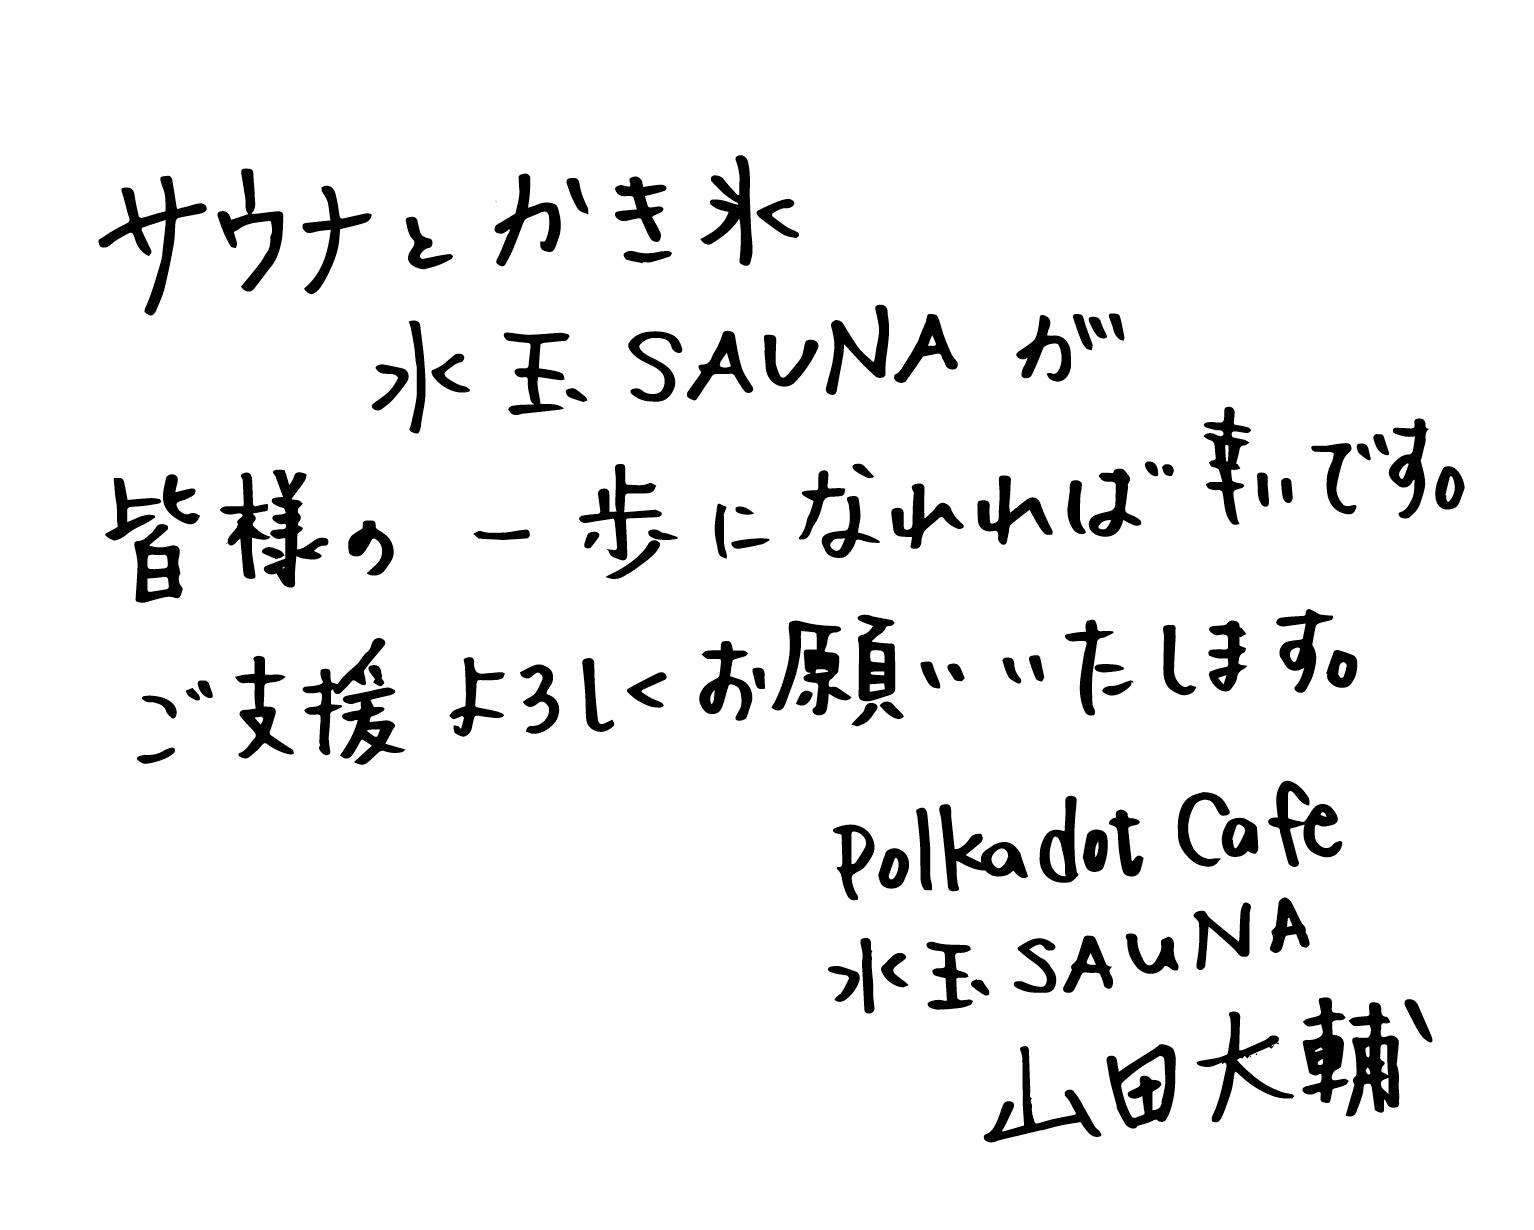 サウナとかき氷
水玉SAUNAが
皆様の一歩になれれば幸いです。
ご支援よろしくお願いいたします。
Polkadot Cafe
水玉SAUNA
山田大輔